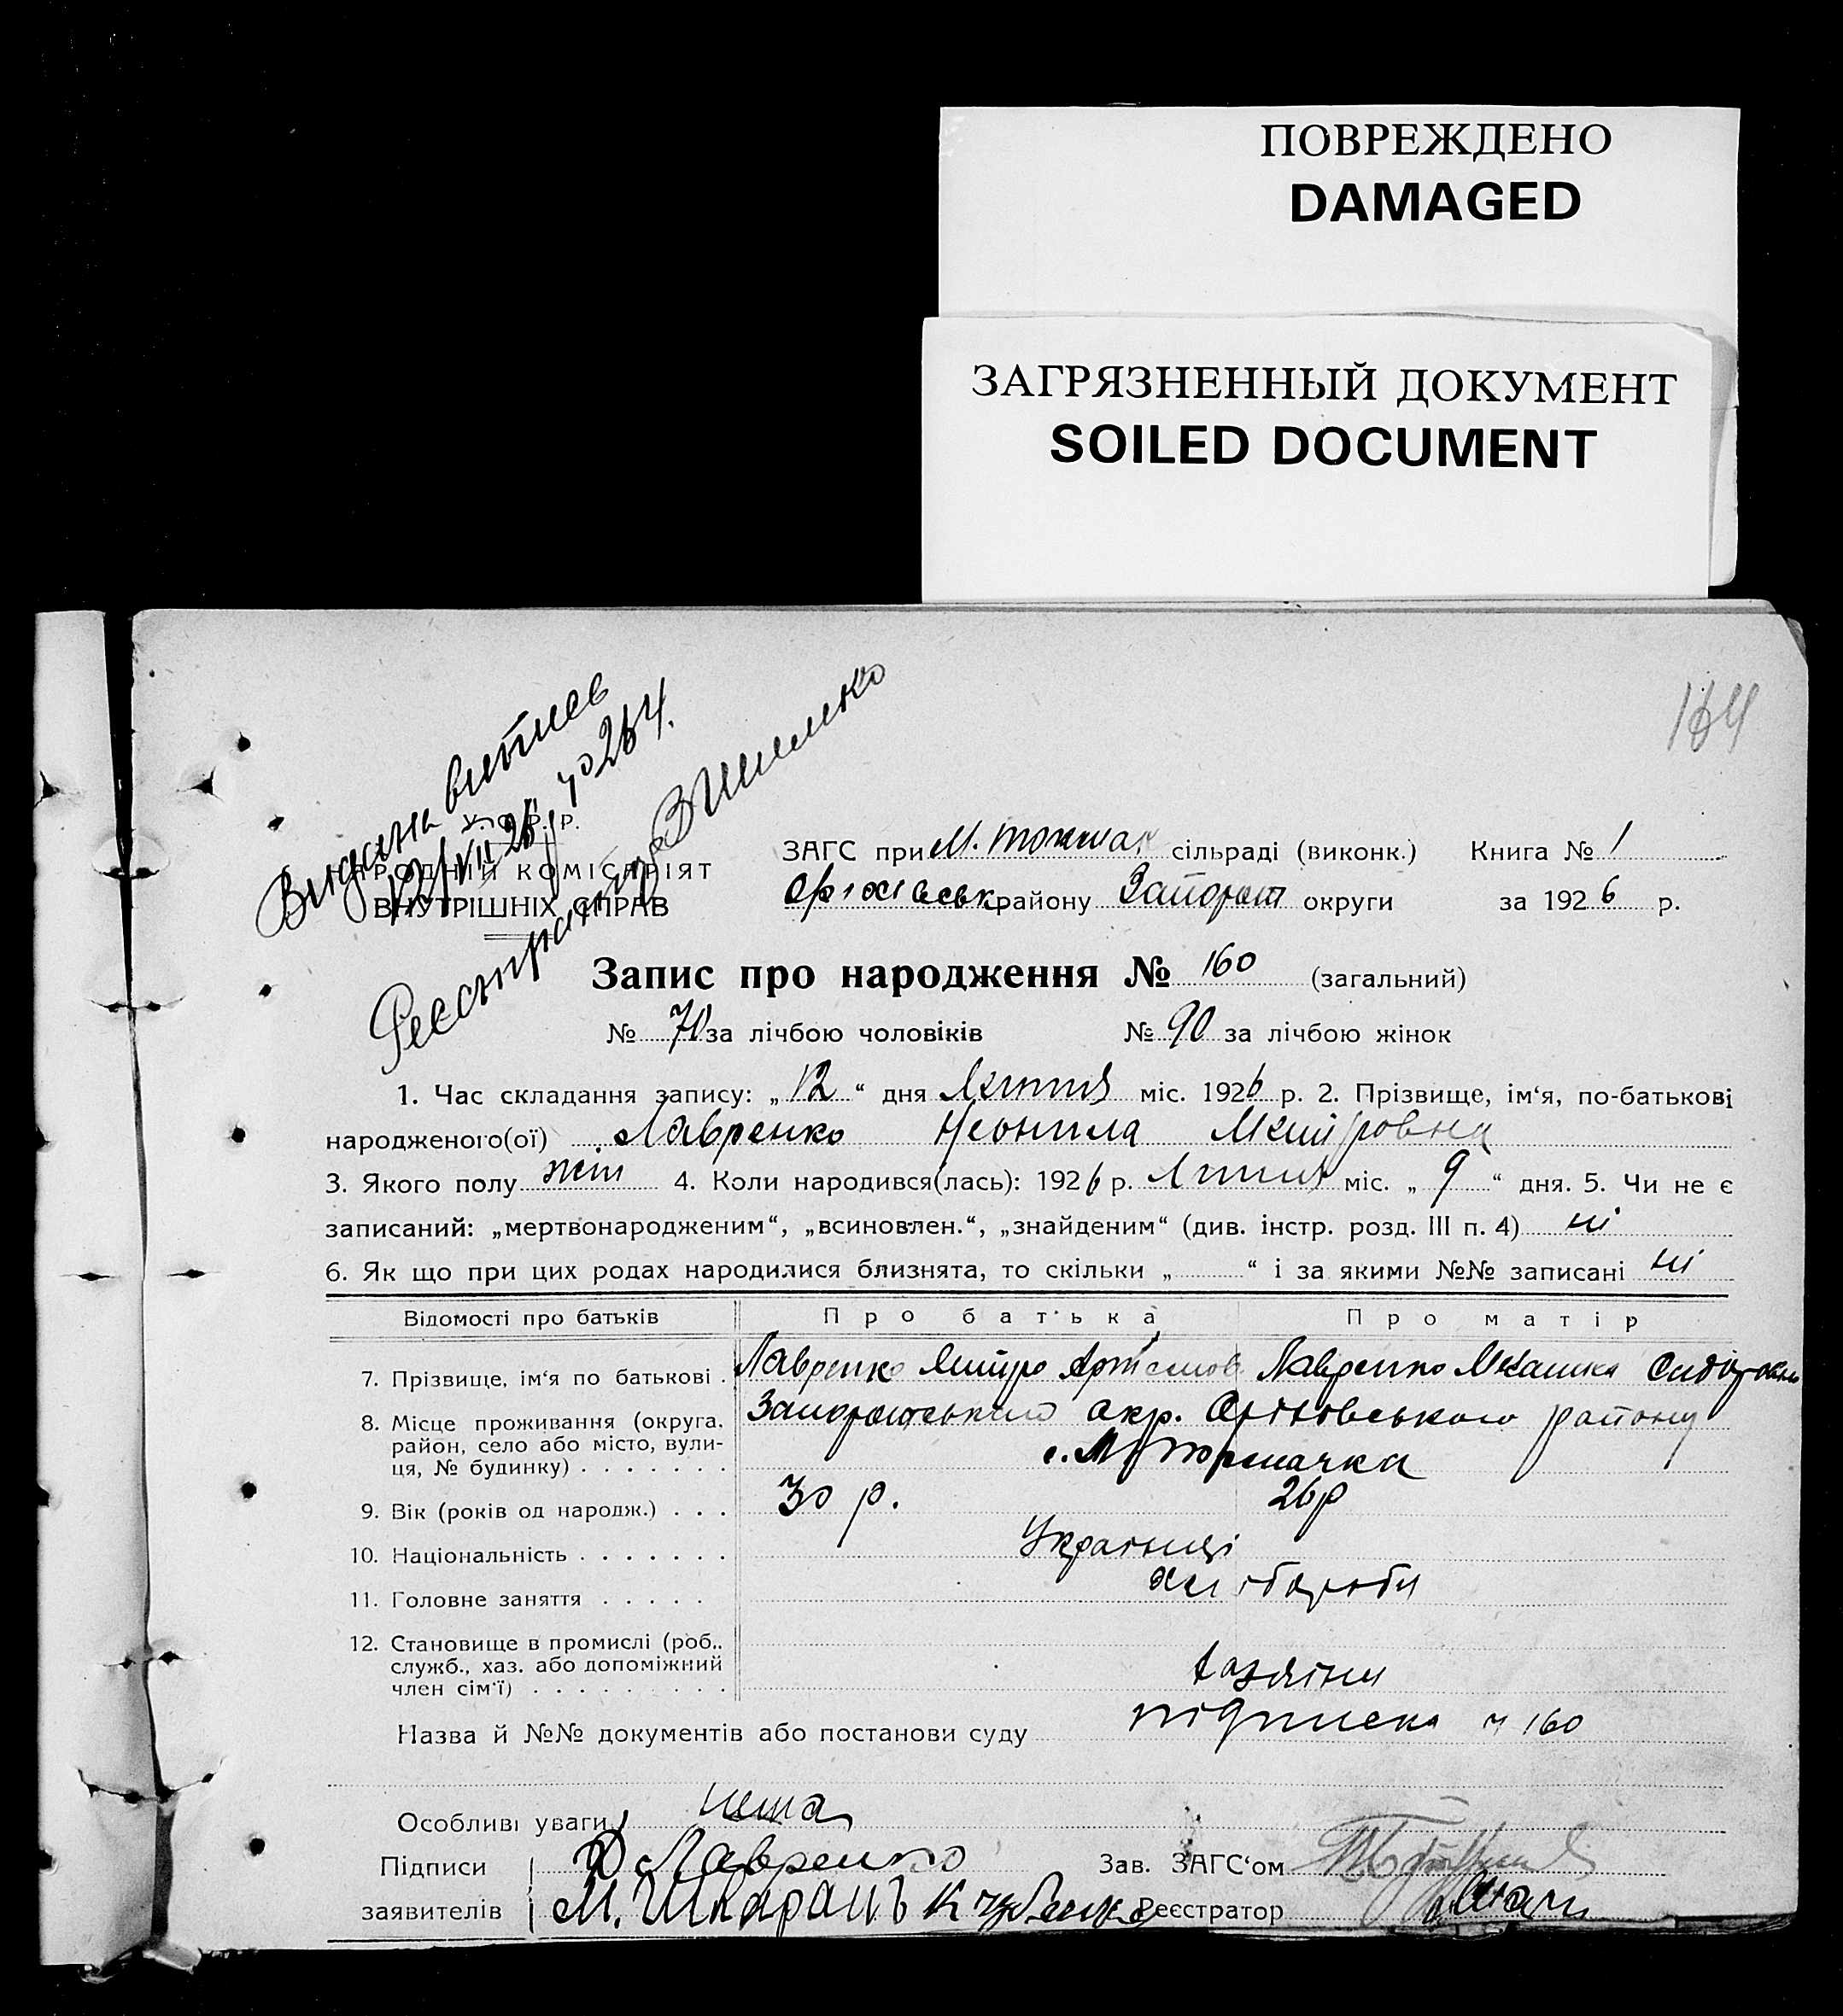 ПОВРЕЖДЕНО
DAMAGED
ЗАГРЯЗНЕННЫЙ ДОКУМЕНТ
SOILED DOCUMENT
164
Видана витпев
12/VII 26 264.
Реєстратор
У. С. Р. Р.
НАРОДНІЙ КОМІСАРІЯТ
ВНУТРІШНІХ СПРАВ
ЗАГС при М. Токмак сільраді (виконк.) Книга № 1
Оріхівськ району Запорож округи за 1926 р.
Запис про народження № 160 (загальний)
№ 70 за лічбою чоловіків № 90 за лічбою жінок
1. Час складання запису: „12“ дня Липня міс. 1926 р. 2. Прізвище, ім‘я, по-батькові
народженого(ої) Лавренко Неонила Дмитровна
3. Якого полу жін 4. Коли народився(лась): 1926 р. Липня міс. „9“ дня. 5. Чи не є
записаний: „мертвонародженим“, „всиновлен.“, „знайденим“ (див. інстр. розд. III п. 4) ні
6. Як що при цих родах народилися близнята, то скільки „ “ і за якими №№ записані ні
Відомості про батьків Про батька Про матір
7. Прізвище, ім‘я по батькові . Лавренко Дмитро Артемов Лавренко
8. Місце проживання (округа, Запорожського окр. Оріхівського району
район, село або місто, вули-
ця, № будинку) . . . . . . . с. М Токмачка
9. Вік (років од народж.) . . . 30 р. 26 р
10. Національність . . . . . . . Українці
11. Головне заняття . . . . . хлібороби
12. Становище в промислі (роб.,
служб., хаз. або допоміжний
член сім‘ї) . . . . . . . . . хазяїни
Назва й №№ документів або постанови суду підписка ч 160
Особливі уваги нема
Підписи Д Лавренко Зав. ЗАГС‘ом
заявителів М. Шкарань К Реєстратор